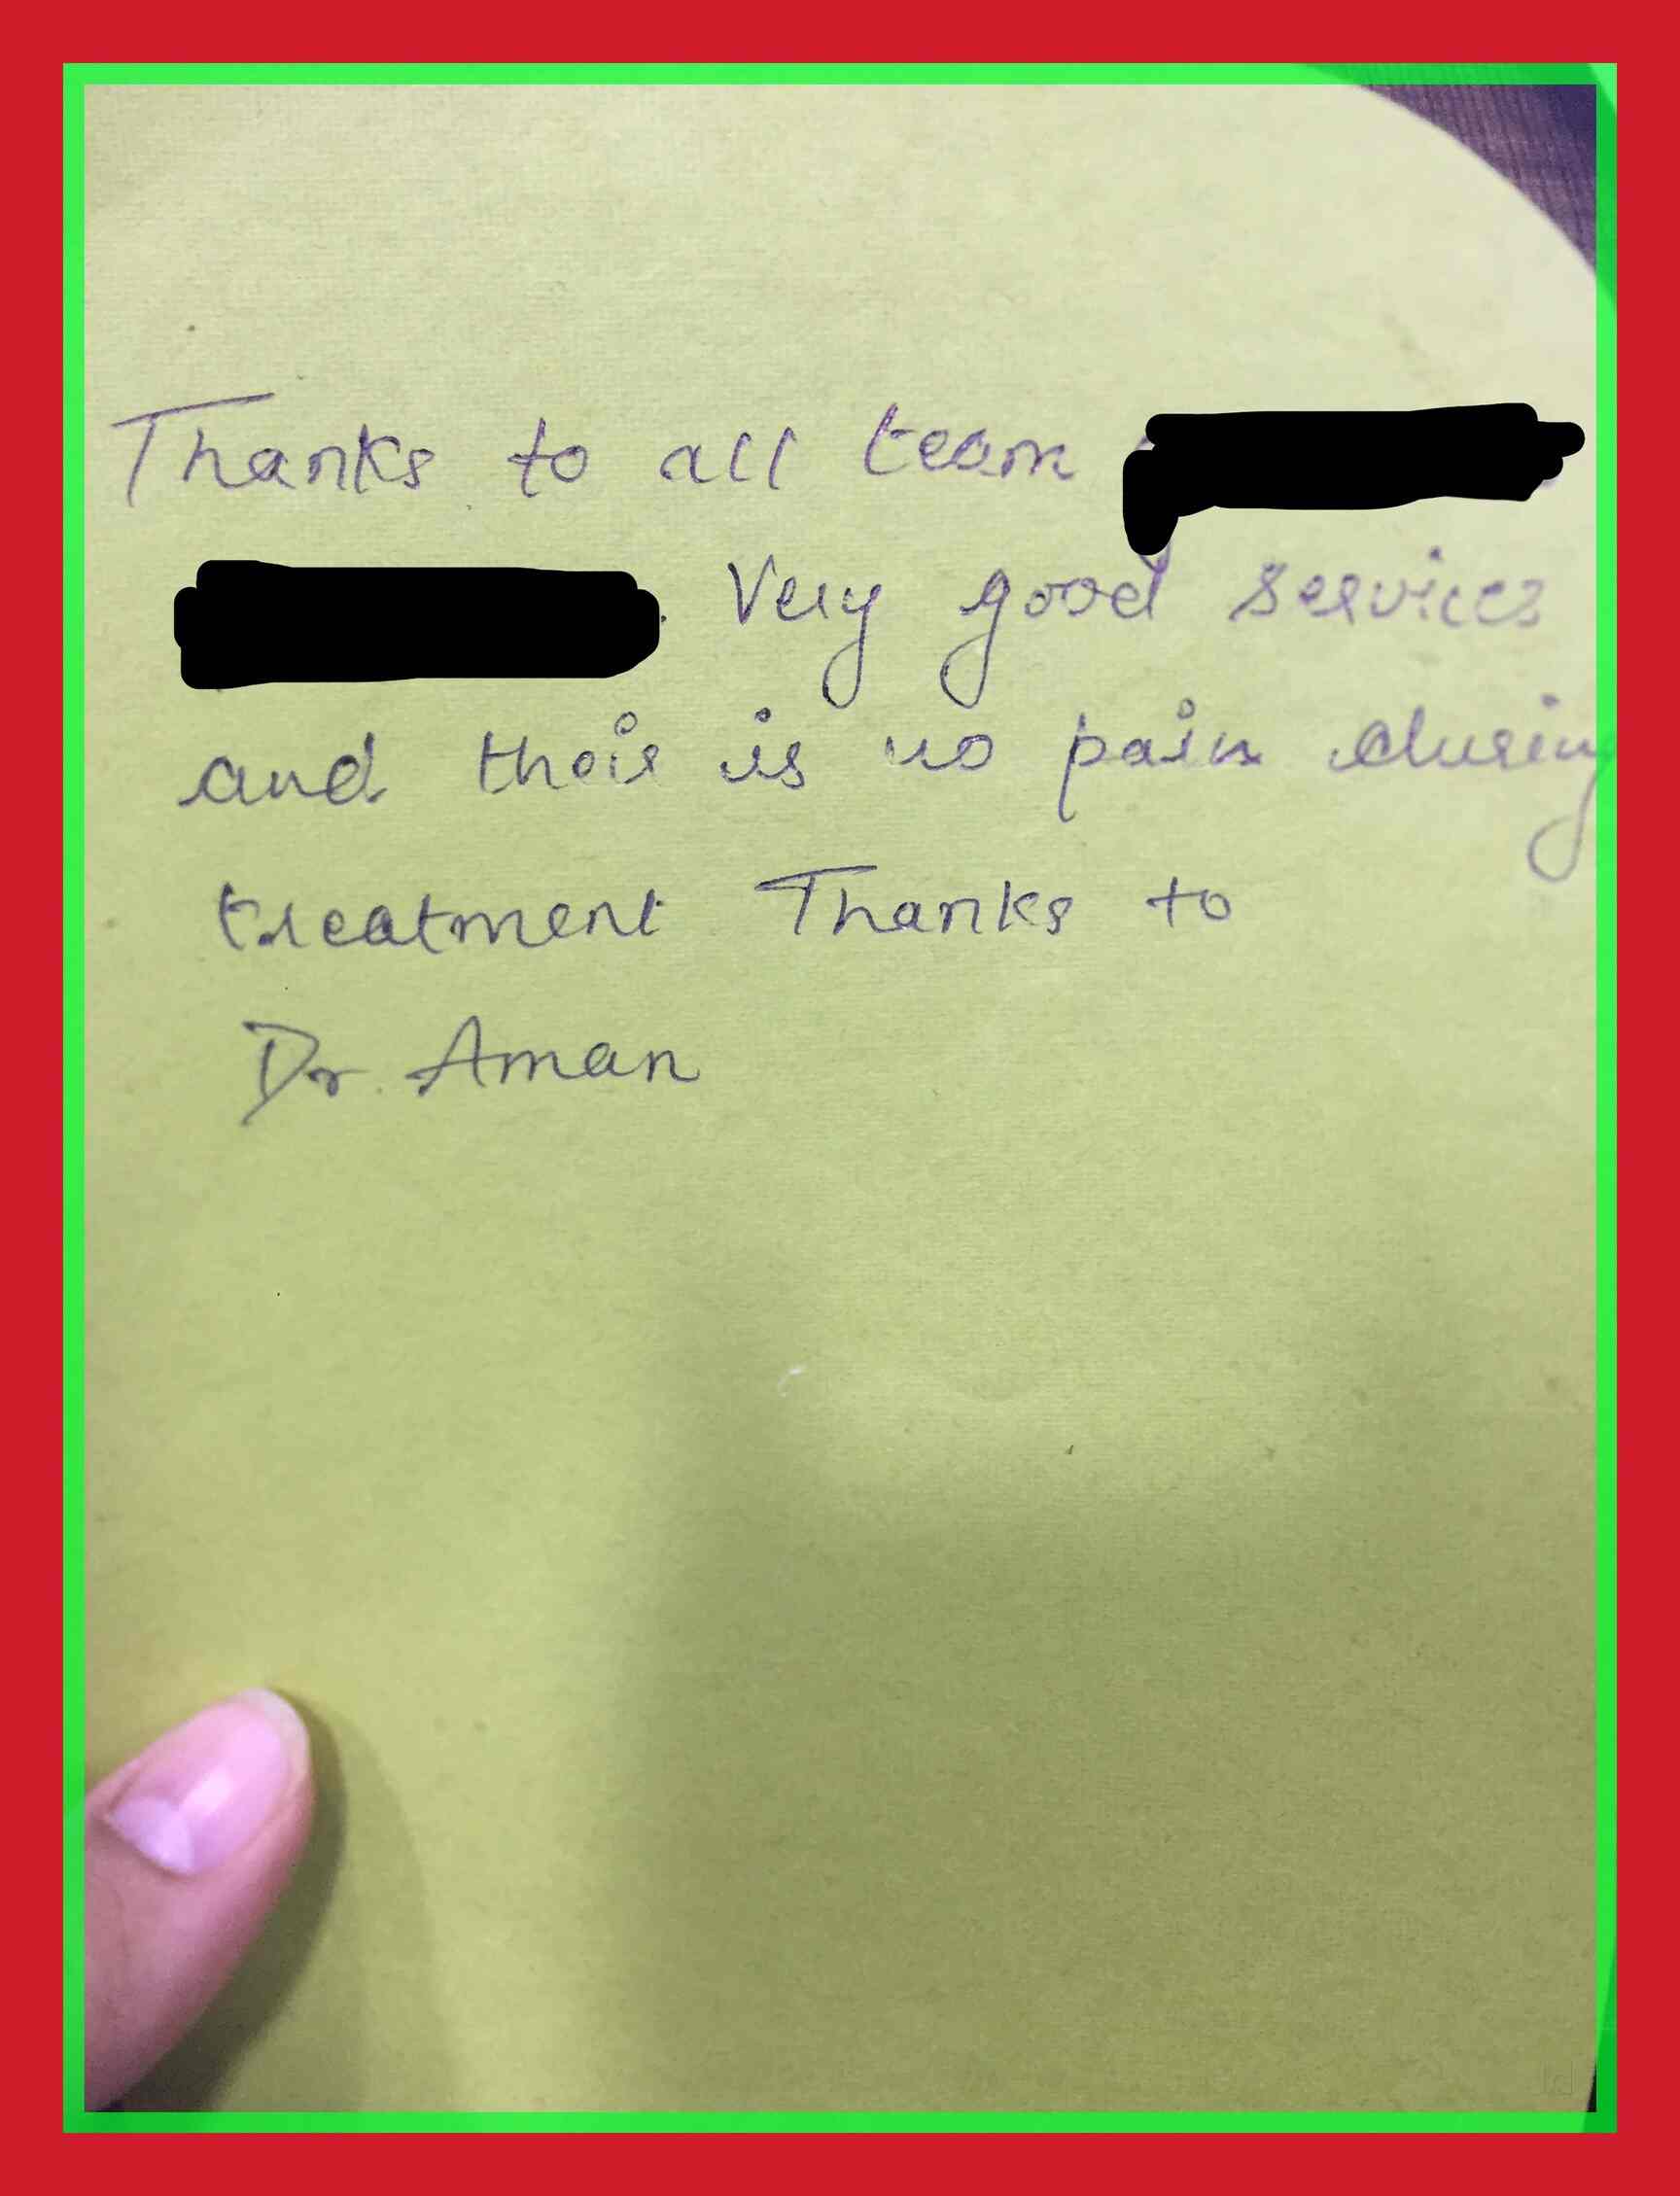 Thanks to all team
. Very good services
and theis is no pain during
treatment Thanks to
Dr. Aman